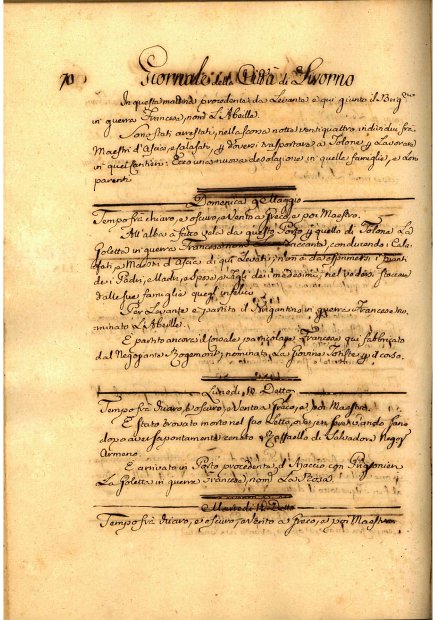 70 Giornale della Città di Livorno
In questa mattina procedente da Levante è qui giunto il Brig.no
in guerra Francese, nom.o L'Abeille.
Sono stati arrestati, nella scorsa notte ventiquattro individui frà
Maestri d'Ascia, e Calafati, p dover trasportarsi a Tolone, e Lavorare
in quel Cantiere: Ecco una nuova desolazione in quelle famiglie, e loro
parenti.
Domenica 9 Maggio
Tempo frà chiaro, e oscuro, e Vento a Greco, e poi Maestro.
All'alba à fatto vela da questo Porto p quello di Tolone La
Goletta in guerra Francese conducendo i Cala-
fati, e Maestri d'Ascia di qui Levati; non è da esprimere i pianti
de i Padri, Madri, Spose, e Figli de i medesimi, nel vedersi staccar
dalle sue famiglie quegl'infelici.
Per Levante è partito il Brigantino in guerra Francese no-
minato L'Abeille.
È partito ancora il locale Francese qui fabbricato
dal Negoziante nominato La p il corso.
Lunedì 10 Detto
Tempo frà chiaro, e oscuro, e Vento a Greco, e poi Maestro.
È stato trovato morto nel suo Letto,
dopo aver saporitamente cenato Raffaello di Salvadore Negoz.
Armeno.
È arrivato in Porto procedente d'Ajaccio con Prigionieri
La Goletta in guerra Francese, nom.a La
Martedì 11 Detto
Tempo frà chiaro, e oscuro, e Vento a Greco, e poi Maestro